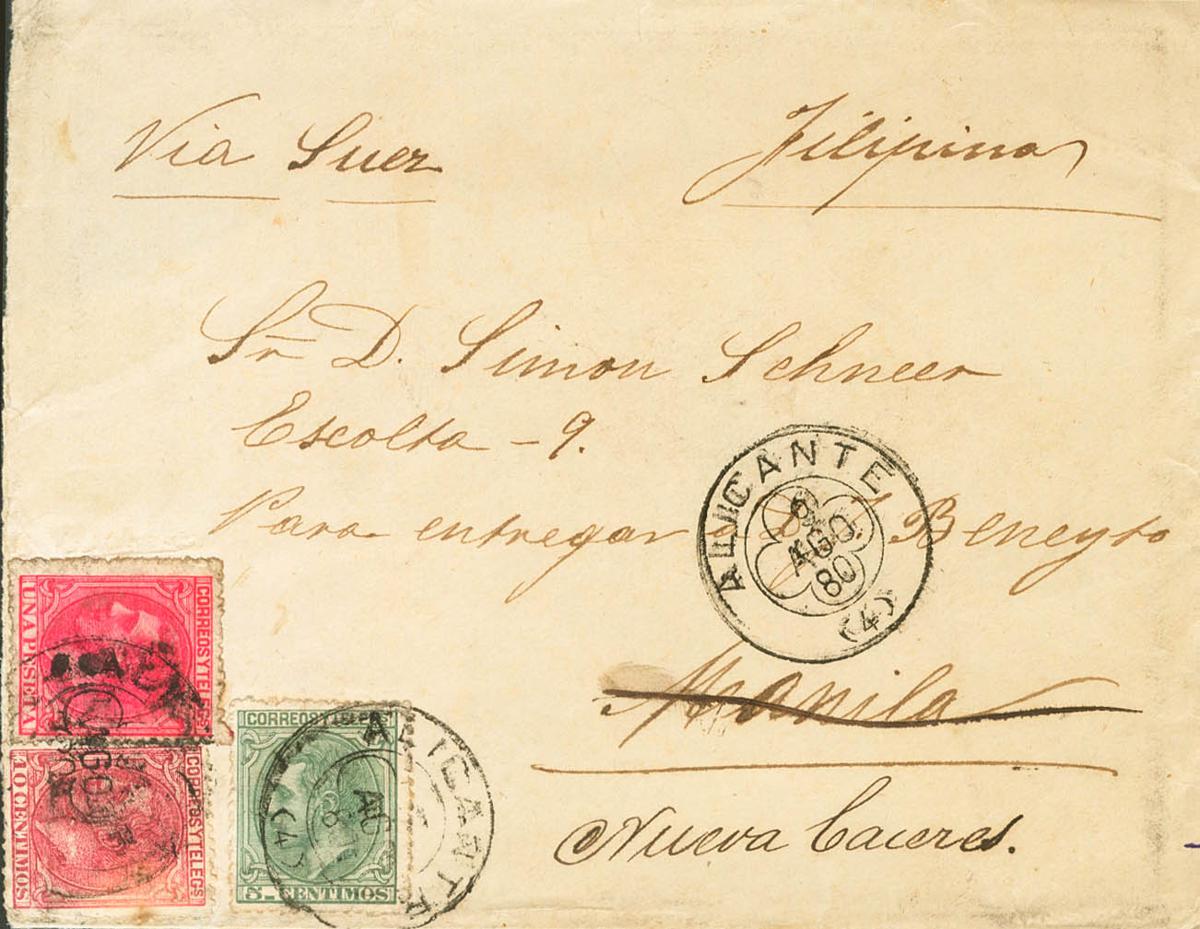 Via Suez
Filipinas
Sr. D. Simon Schneer
Escolta - 9.
Para entregar J Beneyto
ALICANTE
6
AGO.
80
(4)
Manila
Nueva Caceres.
CORREOS Y TELEGS
UNA PESETA
CORREOS Y TELEGS
10 CENTIMOS
CORREOS Y TELEGS
5 CENTIMOS
ALICANTE
(4)